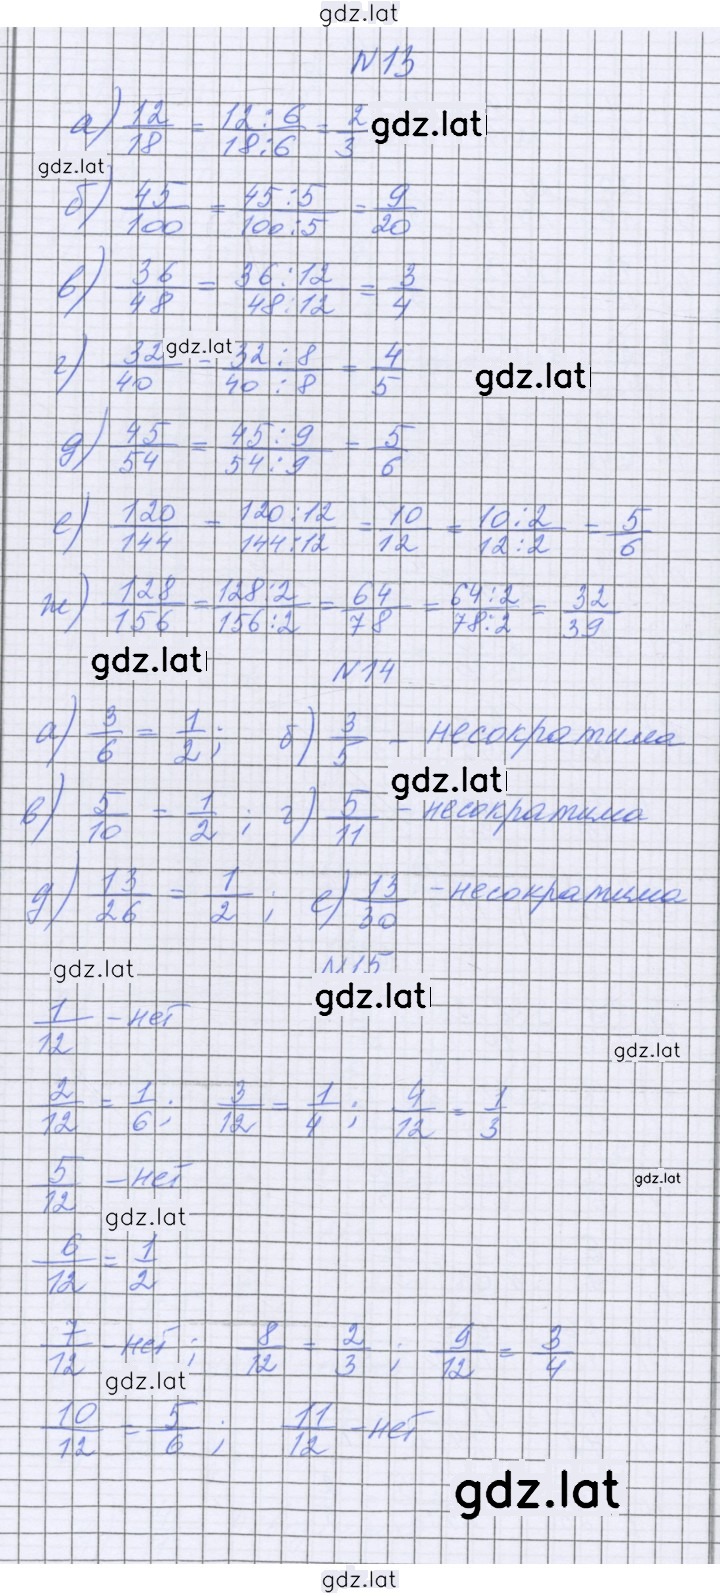 gdz.lat
N13
а) 12/18 = 12:6/18:6 = 2/3 gdz.lat
gdz.lat
б) 45/100 = 45:5/100:5 = 9/20
в) 36/48 = 36:12/48:12 = 3/4
gdz.lat
г) 32/40 = 32:8/40:8 = 4/5
gdz.lat
д) 45/54 = 45:9/54:9 = 5/6
е) 120/144 = 120:12/144:12 = 10/12 = 10:2/12:2 = 5/6
ж) 128/156 = 128:2/156:2 = 64/78 = 64:2/78:2 = 32/39
gdz.lat
N14
а) 3/6 = 1/2; б) 3/5 - несократима
gdz.lat
в) 5/10 = 1/2; г) 5/11 - несократима
д) 13/26 = 1/2; е) 13/30 - несократима
gdz.lat
N15
gdz.lat
1/12 - нет
gdz.lat
2/12 = 1/6; 3/12 = 1/4; 4/12 = 1/3
5/12 - нет
gdz.lat
gdz.lat
6/12 = 1/2
7/12 - нет; 8/12 = 2/3; 9/12 = 3/4
gdz.lat
10/12 = 5/6; 11/12 - нет
gdz.lat
gdz.lat